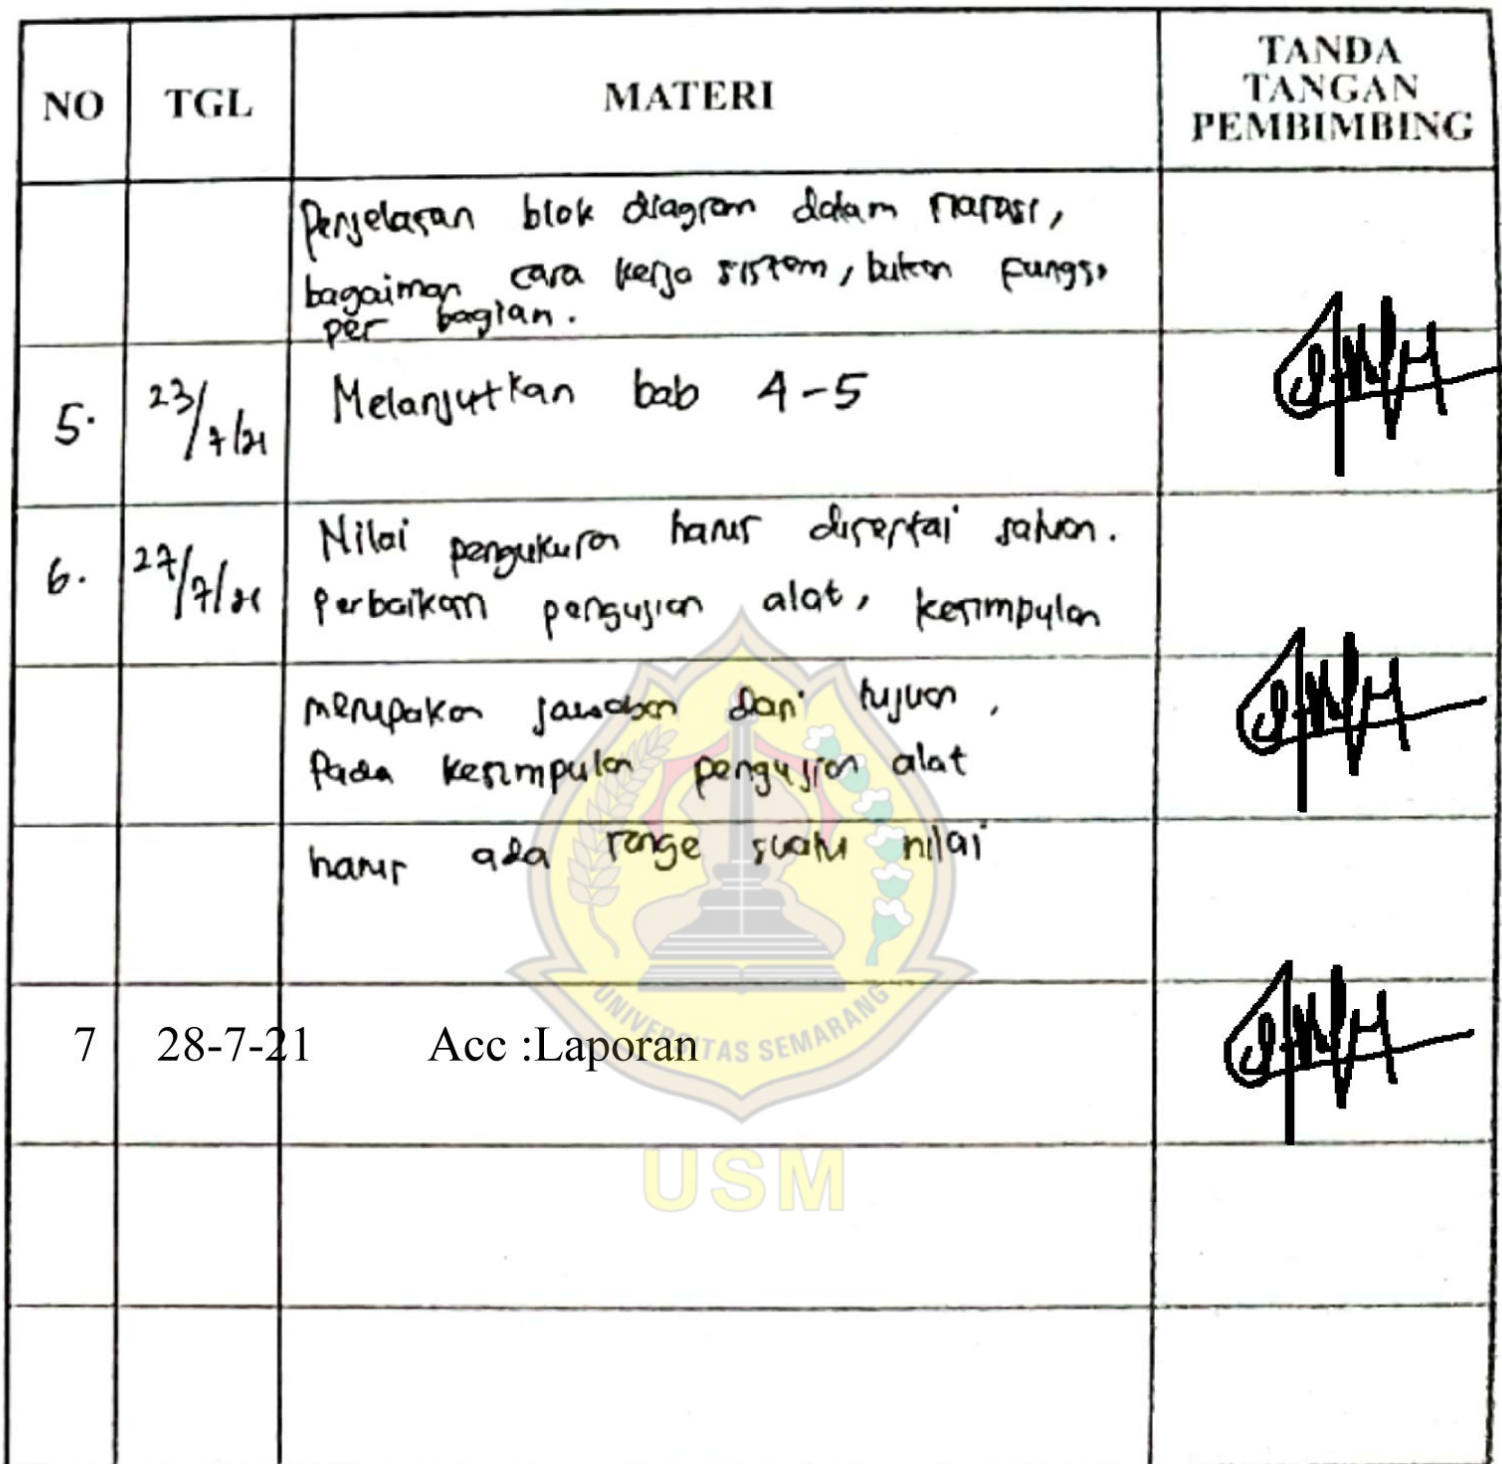 NO TGL MATERI TANDA TANGAN PEMBIMBING
Penjelasan blok diagram dalam narasi,
bagaiman cara kerja sistem, bukan fungsi
per bagian.
5. 23/7/21 Melanjutkan bab 4-5
6. 27/7/21 Nilai pengukuran harus disertai satuan.
Perbaikan pengujian alat, kesimpulan
merupakan jawaban dari tujuan,
Pada kesimpulan pengujian alat
harus ada range suatu nilai
7 28-7-21 Acc :Laporan
UNIVERSITAS SEMARANG
USM